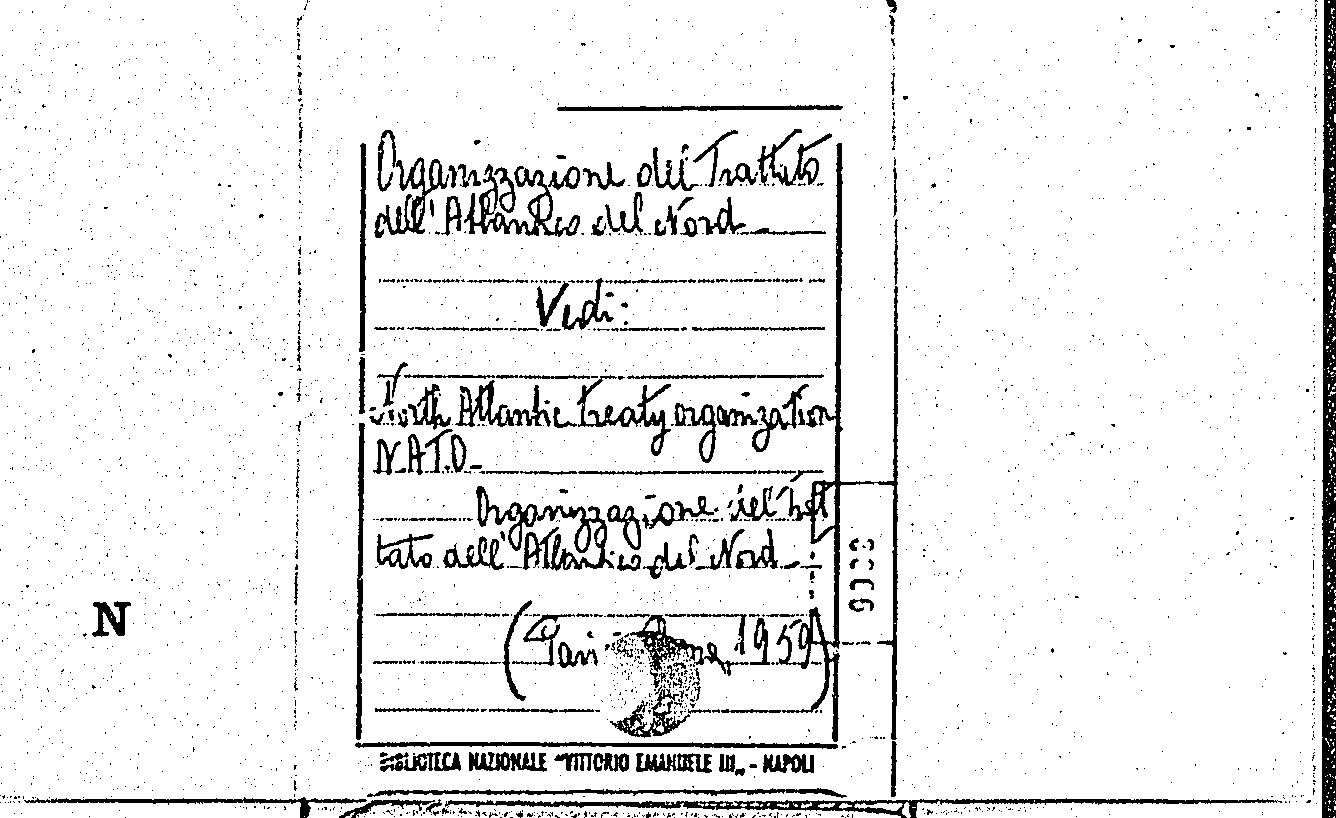 Organizzazione del Trattato
dell'Atlantico del Nord
Vedi:
North Atlantic treaty organization
N.A.T.O.
Organizzazione del Trat
tato dell'Atlantico del Nord
1959)
N
BIBLIOTECA NAZIONALE "VITTORIO EMANUELE III„ - NAPOLI